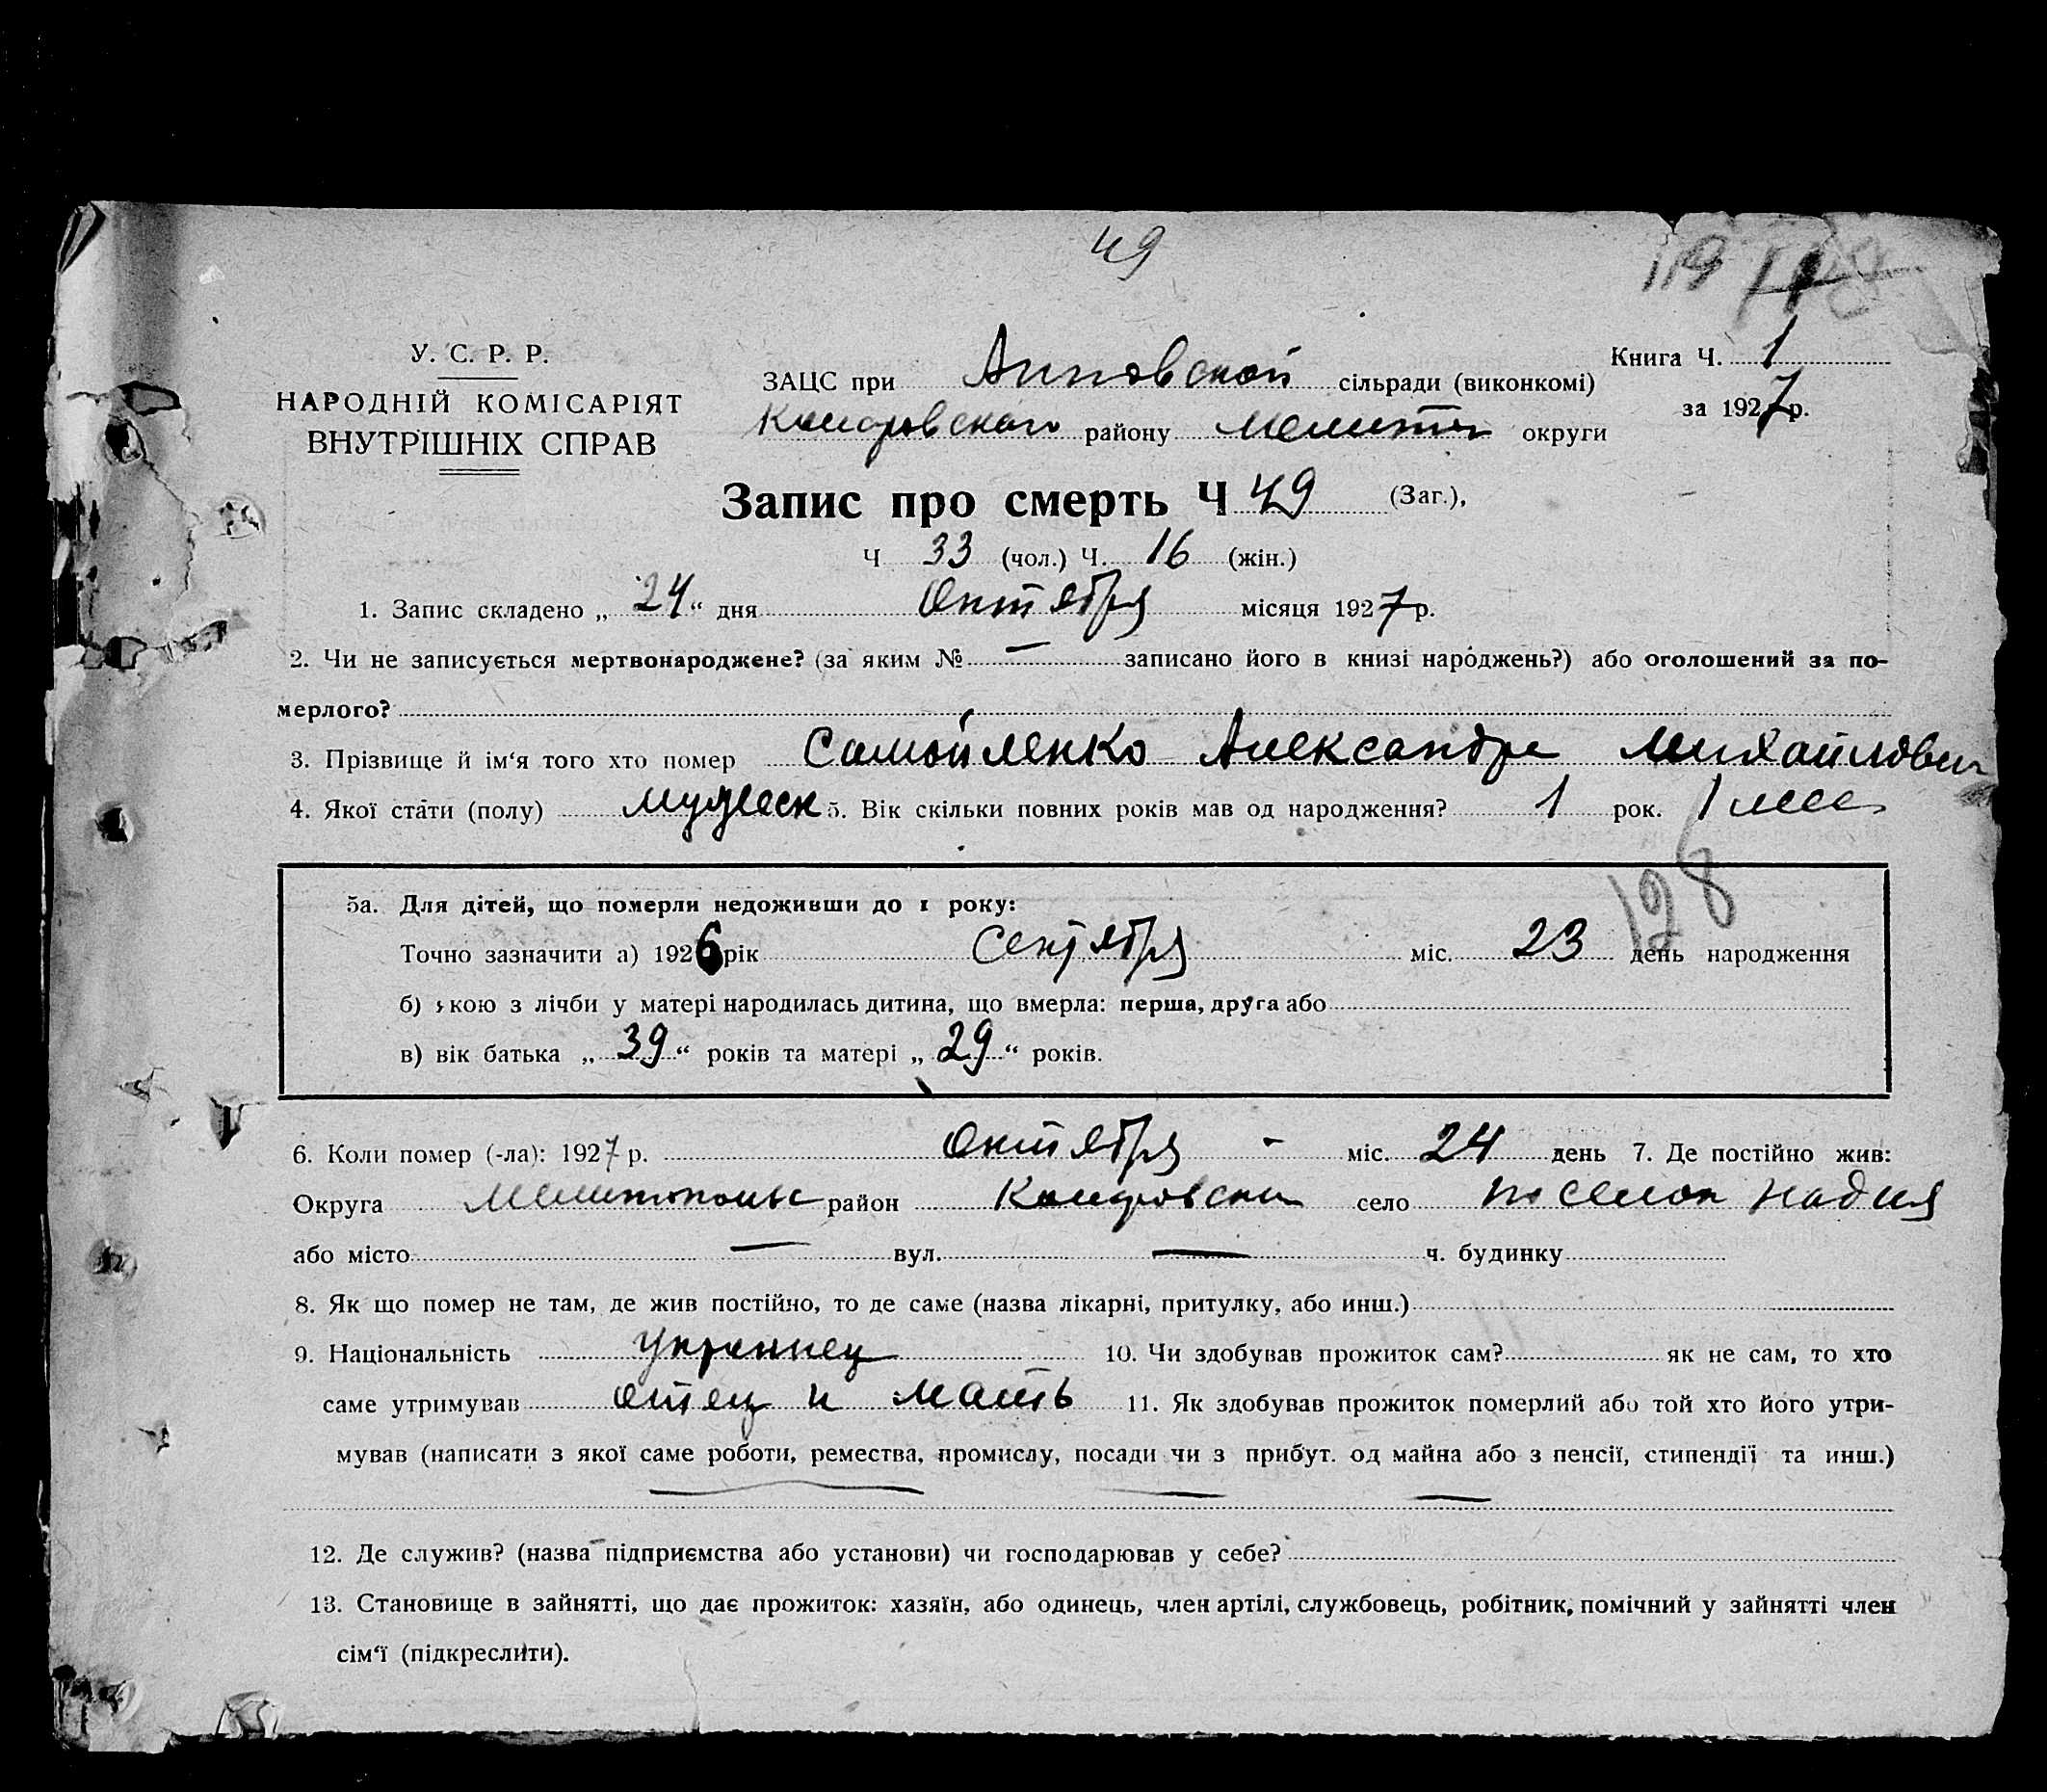 49
119
У. С. Р. Р.
НАРОДНІЙ КОМІСАРІЯТ
ВНУТРІШНІХ СПРАВ
Книга Ч. 1
за 1927 р.
ЗАЦС при сільради (виконкомі)
району Мелитоп округи
Запис про смерть Ч 49 (Заг.),
Ч 33 (чол.) Ч. 16 (жін.)
1. Запис складено „ 24 “ дня Октября місяця 1927 р.
2. Чи не записується мертвонароджене? (за яким № — записано його в книзі народжень?) або оголошений за по-
мерлого?
3. Прізвище й ім‘я того хто помер Самойленко Александр Михайлович
4. Якої стати (полу) мужеск 5. Вік скільки повних років мав од народження? 1 рок. 1 мес
128
5а. Для дітей, що померли недоживши до 1 року:
Точно зазначити а) 1926 рік Сентября міс. 23 день народження
б) якою з лічби у матері народилась дитина, що вмерла: перша, друга або
в) вік батька „ 39 “ років та матері „ 29 “ років.
6. Коли помер (-ла): 1927 р. Октября - міс. 24 день 7. Де постійно жив:
Округа Мелитопольс район село поселок Надия
або місто — вул. — ч. будинку
8. Як що помер не там, де жив постійно, то де саме (назва лікарні, притулку, або инш.)
9. Національність украинец 10. Чи здобував прожиток сам? як не сам, то хто
саме утримував отец и мать 11. Як здобував прожиток померлий або той хто його утри-
мував (написати з якої саме роботи, ремества, промислу, посади чи з прибут. од майна або з пенсії, стипендії та инш.)
— — —
12. Де служив? (назва підприємства або установи) чи господарював у себе?
13. Становище в зайнятті, що дає прожиток: хазяїн, або одинець, член артілі, службовець, робітник, помічний у зайнятті член
сім‘ї (підкреслити).